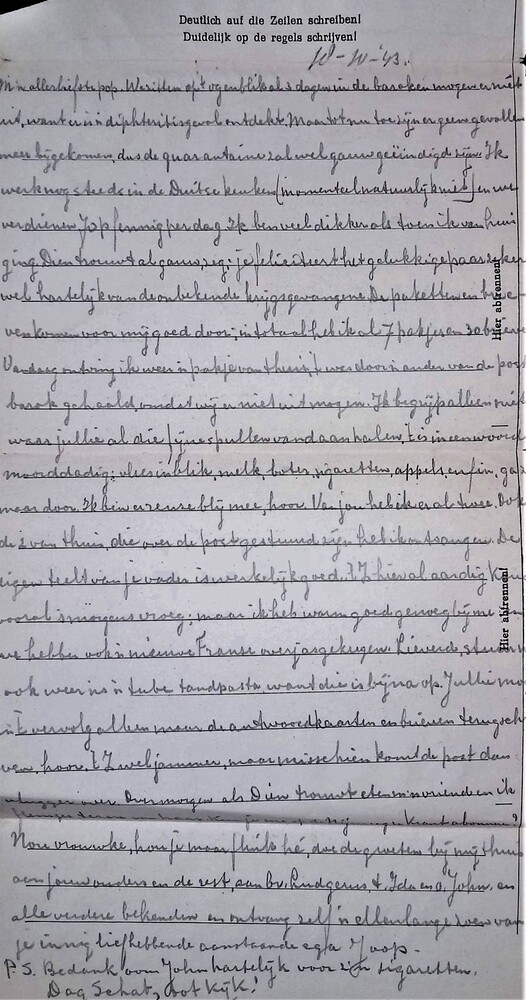 Deutlich auf die Zeilen schreiben!
Duidelijk op de regels schrijven!
10-10-'43.
M'n allerliefste pop. We zitten op 't ogenblik al 3 dagen in de barakken mogen er niet
uit, want er is 'n diphteritisgeval ontdekt. Maar tot nu toe zijn er geen gevallen
meer bijgekomen, dus de quarantaine zal wel gauw geëindigd zijn. Ik
werk nog steeds in de Duitse keuken (momenteel natuurlijk niet) en we
verdienen 70 pfennig per dag. Ik ben veel dikker als toen ik van huis
ging. Dien trouwt al gauw, zeg: je feliciteert het gelukkige paar zeker
wel hartelijk van de onbekende krijgsgevangene. De paketten en brie-
ven komen voor mij goed door; in totaal heb ik al 7 pakjes en 30 brieven
Vandaag ontving ik weer 'n pakje van thuis, 't was door 'n ander van de post
barak gehaald, omdat wij er niet uit mogen. Ik begrijp alleen niet
waar jullie al die fijne spullen vandaan halen, 't is in een woord
moorddadig: vlees in blik, melk, boter, sigaretten, appels, enfin, ga
maar door. Ik ben er reuze blij mee, hoor. Van jou heb ik er al twee. Ook
de 2 van thuis, die over de post gestuurd zijn heb ik ontvangen. De
eigen teelt van je vader is werkelijk goed. 't Is hier al aardig
vooral s'morgens vroeg; maar ik heb warm goed genoeg bij me en
we hebben ook 'n nieuwe Franse overjas gekregen. Lieverd, stuur
ook weer 'ns 'n tube tandpasta want die is bijna op. Jullie
in 't vervolg alleen maar de antwoordkaarten en brieven terugschrij
ven, hoor. 't Is wel jammer, maar misschien komt de post dan
vlugger over. Overmorgen als Dien trouwt eten m'n vrienden en ik
Nou vrouwke, hou je maar flink hé, doe de groeten bij mij thuis
aan jouw ouders en de rest, aan br. Ludgerus, t. Ida en o. John. en
alle verdere bekenden en ontvang zelf 'n ellenlange zoen van
je innig liefhebbende aanstaande ega Joop.
P.S. Bedank oom John hartelijk voor z'n sigaretten.
Dag Schat, tot kijk!
Hier abtrennen!
Hier abtrennen!